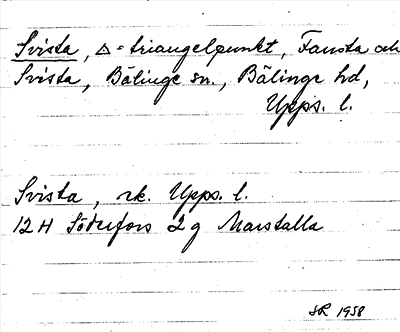 Svista, △ = triangelpunkt, Fansta och
Svista, Bälinge sn., Bälinge hd,
Upps. l.
Svista, rk. Upps. l.
12 H Söderfors 2 g Marstalla
SR 1958